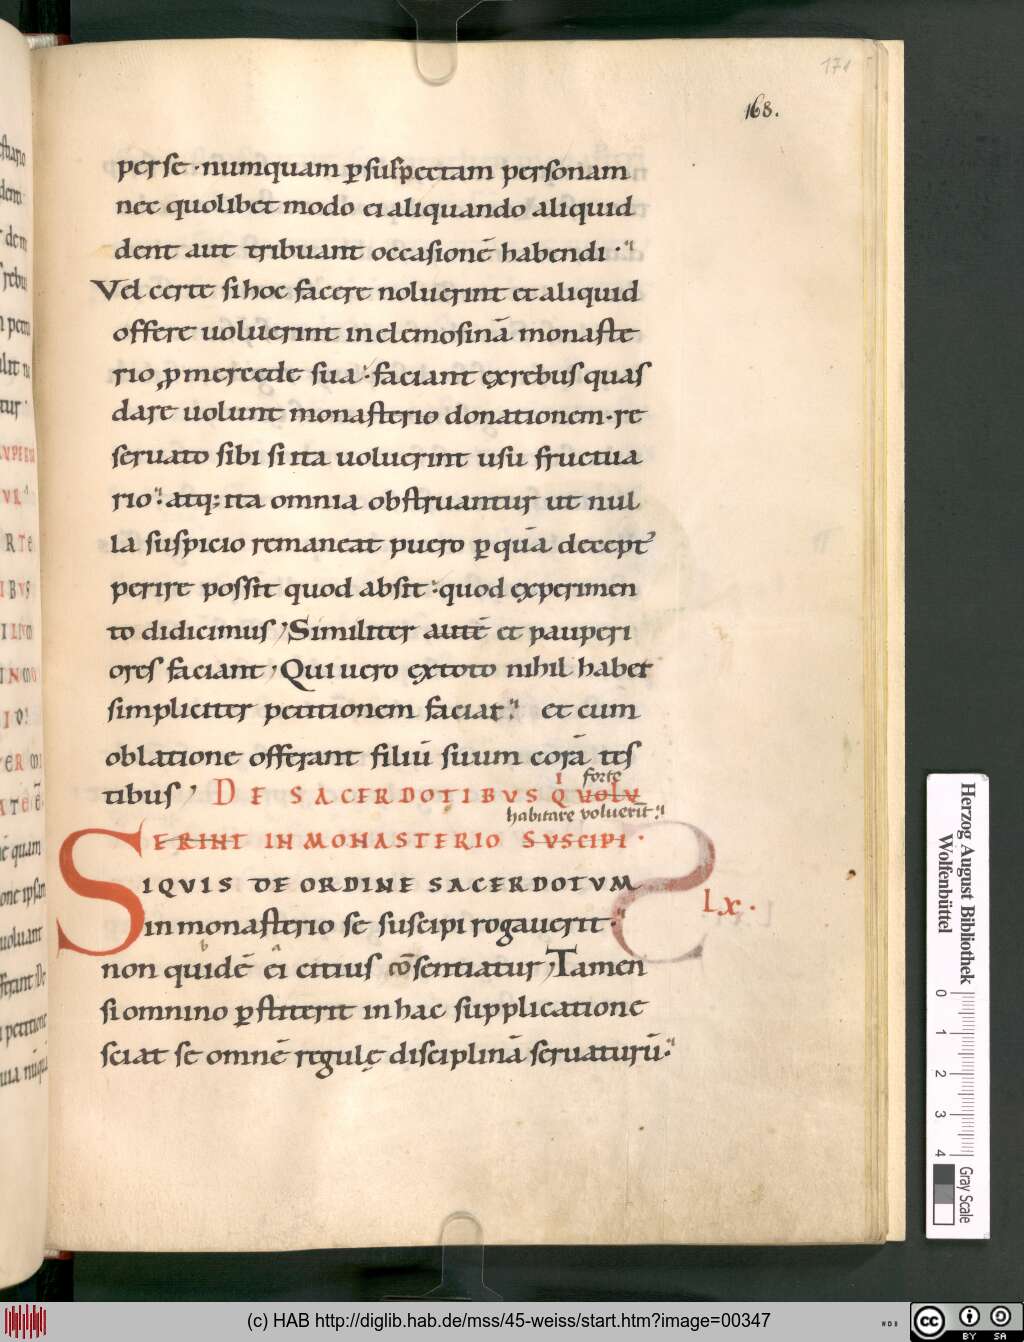 171
168.
per se · numquam ꝑsuspectam personam
nec quolibet modo ei aliquando aliquid
dent aut tribuant occasionē habendi
Vel certe si hoc facere noluerint et aliquid
offerre uoluerint in elemosinā monaste
rio ꝓ mercede sua · faciant exrebus quas
dare uolunt monasterio donationem · re
seruato sibi si ita uoluerint usu fructua
rio · atq; ita omnia obstruantur ut nul
la suspicio remaneat puero ꝑ quā decept᷒
perire possit quod absit · quod experimen
to didicimus, Similiter autē et pauperi
ores faciant, Qui uero extoto nihil habet
simpliciter petitionem faciat et cum
oblatione offerant filiū suum corā tes
tibus, DE SACERDOTIBUS QUI VOLU
forte
habitare voluerit
ERINT IN MONASTERIO SUSCIPI ·
SIQVIS DE ORDINE SACERDOTVM
LX.
in monasterio se suscipi rogauerit
non quidē ei citius cōsentiatur, Tamen
si omnino ꝑstiterit in hac supplicatione
sciat se omnē regulę disciplinā seruaturū
Herzog August Bibliothek
Wolfenbüttel
0 1 2 3 4
Gray Scale
(c) HAB http://diglib.hab.de/mss/45-weiss/start.htm?image=00347
cc BY SA